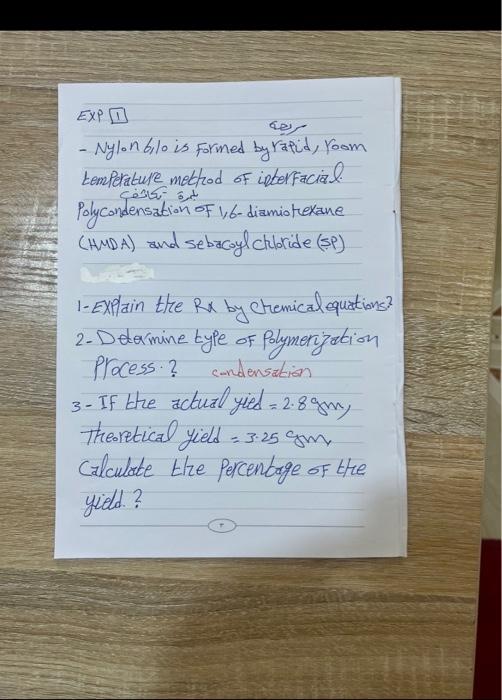 EXP 1
سريعة
- Nylon 6,10 is Formed by rapid, room
temperature method of interfacial
بلمرة تكاثف
Polycondensation of 1,6-diamiohexane
(HMDA) and sebacoyl chloride (SP)
1-Explain the Rx by Chemical equations?
2- Determine type of Polymerization
Process.? condensation
3- If the actual yied = 2.8 gm,
Theoretical yield = 3.25 gm,
Calculate the Percentage of the
yield.?